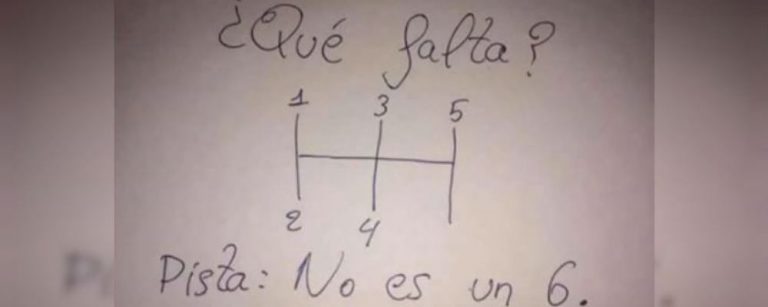 ¿Qué falta?
1 3 5
2 4
Pista: No es un 6.